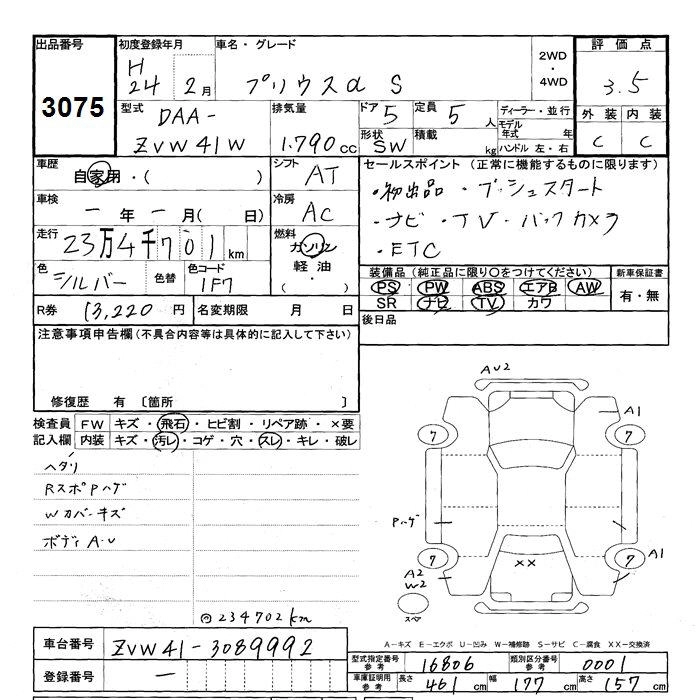 出品番号 初度登録年月 車名・グレード 2WD・4WD 評価点
3075 H24 2月 プリウスα S 3.5
型式 DAA-ZVW41W 排気量 1.790cc ドア 5 定員 5人 ディーラー・並行 外装 内装
形状 SW 積載 kg モデル年式 年 ハンドル 左・右 C C
車歴 自家用・( ) シフト AT セールスポイント (正常に機能するものに限ります)
車検 ー年ー月( 日) 冷房 AC ・初出品・プッシュスタート
・ナビ・TV・バックカメラ
・ETC
走行 23万4千701km 燃料 ガソリン 軽油・( )
色 シルバー 色替 色コード 1F7 装備品 (純正品に限り○をつけてください) 新車保証書
PS PW ABS エアB AW 有・無
SR ナビ TV カワ
R券 13,220円 名変期限 月 日 後日品
注意事項申告欄(不具合内容等は具体的に記入して下さい)
修復歴 有 〔箇所 〕
検査員 FW キズ・飛石・ヒビ割・リペア跡・×要
記入欄 内装 キズ・汚レ・コゲ・穴・スレ・キレ・破レ
ヘタリ
RスポPハゲ
Wカバーキズ
ボディA・U
◎234702km
AU2
A1
7 7
Pハゲ
7 7 A1
××
A2
W2
スペア
A-キズ E-エクボ U-凹み W-補修跡 S-サビ C-腐食 XX-交換済
車台番号 ZVW41-3089992
登録番号 ー
型式指定番号 参考 16806 類別区分番号 参考 0001
車庫証明用 参考 長さ 461cm 幅 177cm 高さ 157cm